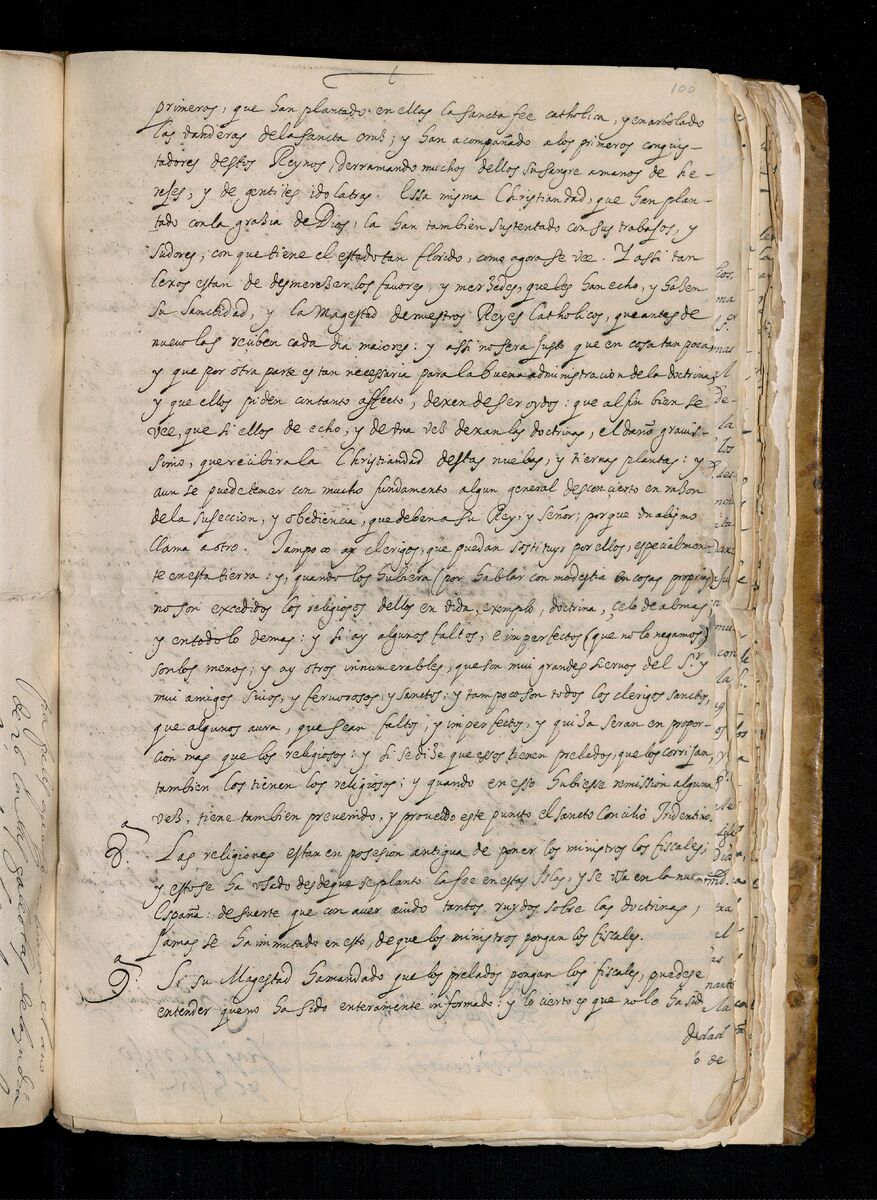 100
primeros, que han plantado en ellas la sancta fee catholica, y enarbolado
las vanderas de la sancta cruz; y han acompañado a los primeros conquis-
tadores destos Reynos, derramando muchos dellos su sangre a manos de he-
rejes, y de gentiles idolatras. Essa misma Christiandad, que han plan-
tado con la grazia de Dios, la han tambien sustentado con sus trabajos, y
sudores, con que tiene el estado tan florido, como agora se vee. Y assi tan
lexos estan de desmerezer los favores, y merzedes, que les han echo, y hazen
su Sanctidad, y la Magestad de nuestros Reyes Catholicos, que antes de
nuevo las reciben cada dia maiores: y assi no sera justo que en cosa tan poca,
y que por otra parte es tan necessaria para la buena administracion de la doctrina,
y que ellos piden con tanto affecto, dexen de ser oydos: que al fin bien se
vee, que si ellos de echo, y de una vez dexan las doctrinas, el daño gravis-
simo, que recibira la Christiandad destas nuebas, y tiernas plantas: y
aun se puede tener con mucho fundamento algun general desconcierto en razon
de la sujeccion, y obediencia, que deben a su Rey, y señor; porque un abismo
llama a otro. Tampoco ay clerigos, que puedan sostituyr por ellos, especialmen-
te en esta tierra: y, quando los hubiera (por hablar con modestia en cosas proprias)
no son excedidos los religiosos dellos en vida, exemplo, doctrina, çelo de almas,
y en todo lo demas: y si ay algunos faltos, e imperfectos (que no lo negamos)
son los menos; y ay otros innumerables, que son mui grandes siervos del Sr. y
mui amigos suios, y fervorosos, y sanctos: y tampoco son todos los clerigos sanctos,
que algunos aura, que sean faltos, y imperfectos, y quiza seran en propor-
cion mas que los religiosos: y si se dize que essos tienen prelados, que los corrijan,
tambien los tienen los religiosos: y quando en esso hubiesse remission alguna
vez, tiene tambien prevenido, y proveido este puncto el sancto Concilio Tridentino.
8.a Las religiones estan en posesion antigua de poner los ministros los fiscales;
y esto se ha usado desde que se planto la fee en estas Islas, y se usa en la nueva
España: de suerte que con aver avido tantos ruydos sobre las doctrinas,
jamas se ha inmutado en esto, de que los ministros pongan los fiscales.
9.a Si su Magestad ha mandado que los prelados pongan los fiscales, puedese
entender que no ha sido enteramente informado: y lo cierto es que no lo ha sid